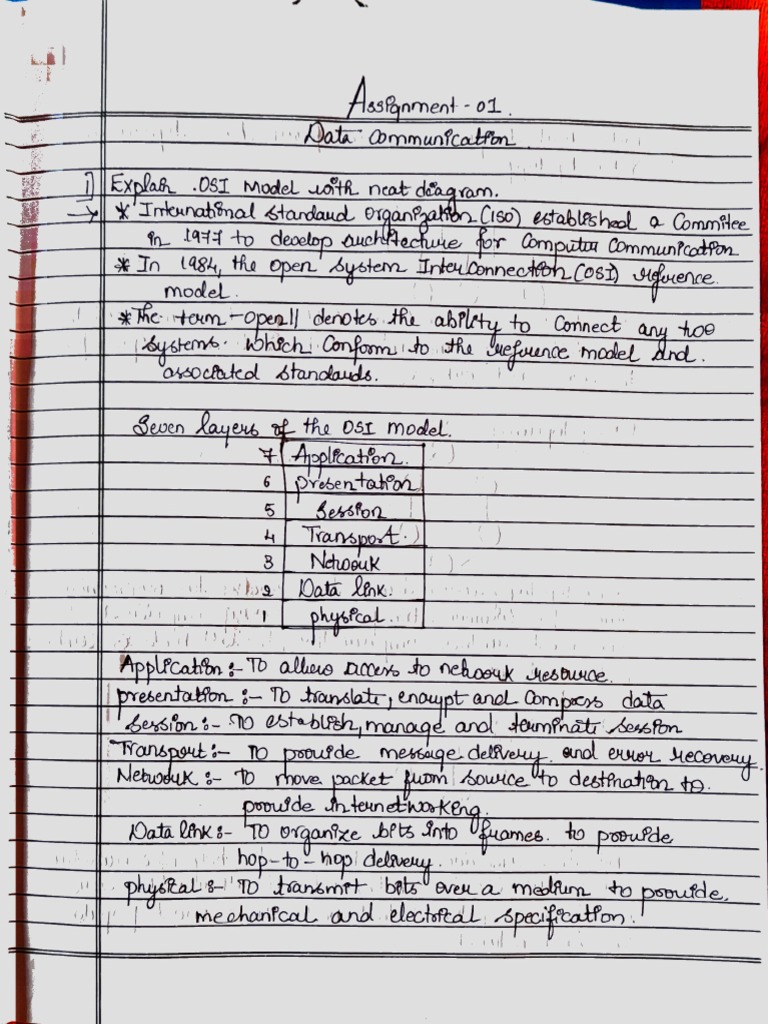 Assignment - 01.
Data Communication
1] Explain OSI Model with neat diagram.
→ * International Standard Organization (ISO) established a Commitee
in 1977 to develop architecture for Computer Communication
* In 1984, the Open System InterConnection (OSI) reference
model.
* The term - Open || denotes the ability to Connect any two
systems which Conform to the reference model and.
associated standards.
Seven layers of the OSI model.
7 Application.
6 presentation
5 Session
4 Transport.
3 Network
2 Data link.
1 physical.
Application :- To allow access to network resource.
presentation :- To translate, encrypt and Compress data
Session :- To establish, manage and terminate session
Transport :- To provide message delivery and error recovery.
Network :- To move packet from source to destination to
provide internetworking.
Data link :- To organize bits into frames. to provide
hop-to-hop delivery.
physical :- To transmit bits over a medium to provide.
mechanical and electrical specification.